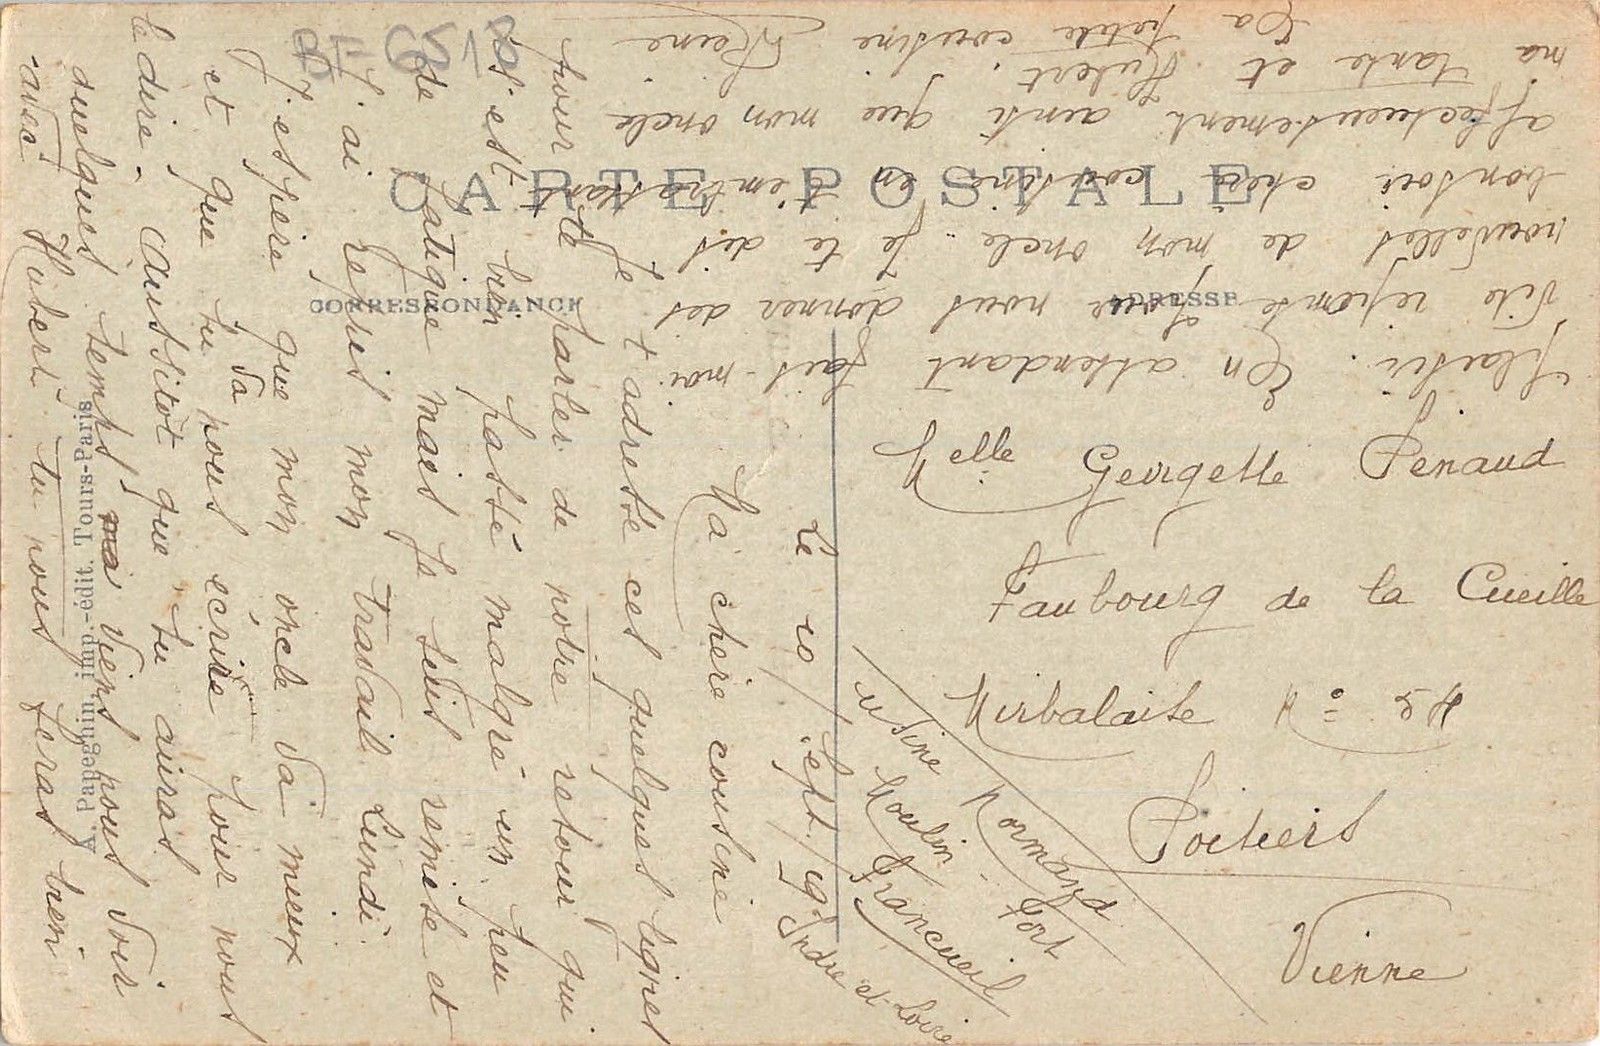 BF 6518
CARTE POSTALE
CORRESPONDANCE
ADRESSE
A. Papeghin, imp.-édit. Tours-Paris
Le 10/Sept/19
Ma chere cousine
Je t'adresse ces quelques lignes
pour te parler de notre retour qui
s'est bien passé malgré un peu
de fatigue mais je suis remise et
j'ai repris mon travail Lundi.
J'espère que mon oncle va mieux
et que tu va nous écrire pour nous
le dire. Aussitôt que tu auras
quelques temps viens nous voir
avec Hubert tu nous feras bien
plaisir. En attendant fais-moi
vite reponse pour nous donner des
nouvelles de mon oncle. Je te dis
bonsoir chère cousine en t'embrassant
affectueusement ainsi que mon oncle
ma tante et Hubert.
Ta petite cousine Reine
Melle Georgette Penaud
Faubourg de la Cueille
Mirbalaise N°
Poitiers
Vienne
Usine Normand
Moulin Fort
Francueil
Indre-et-Loire